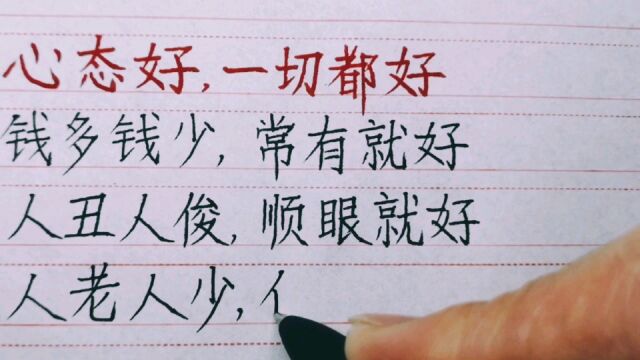 心态好,一切都好
钱多钱少,常有就好
人丑人俊,顺眼就好
人老人少,